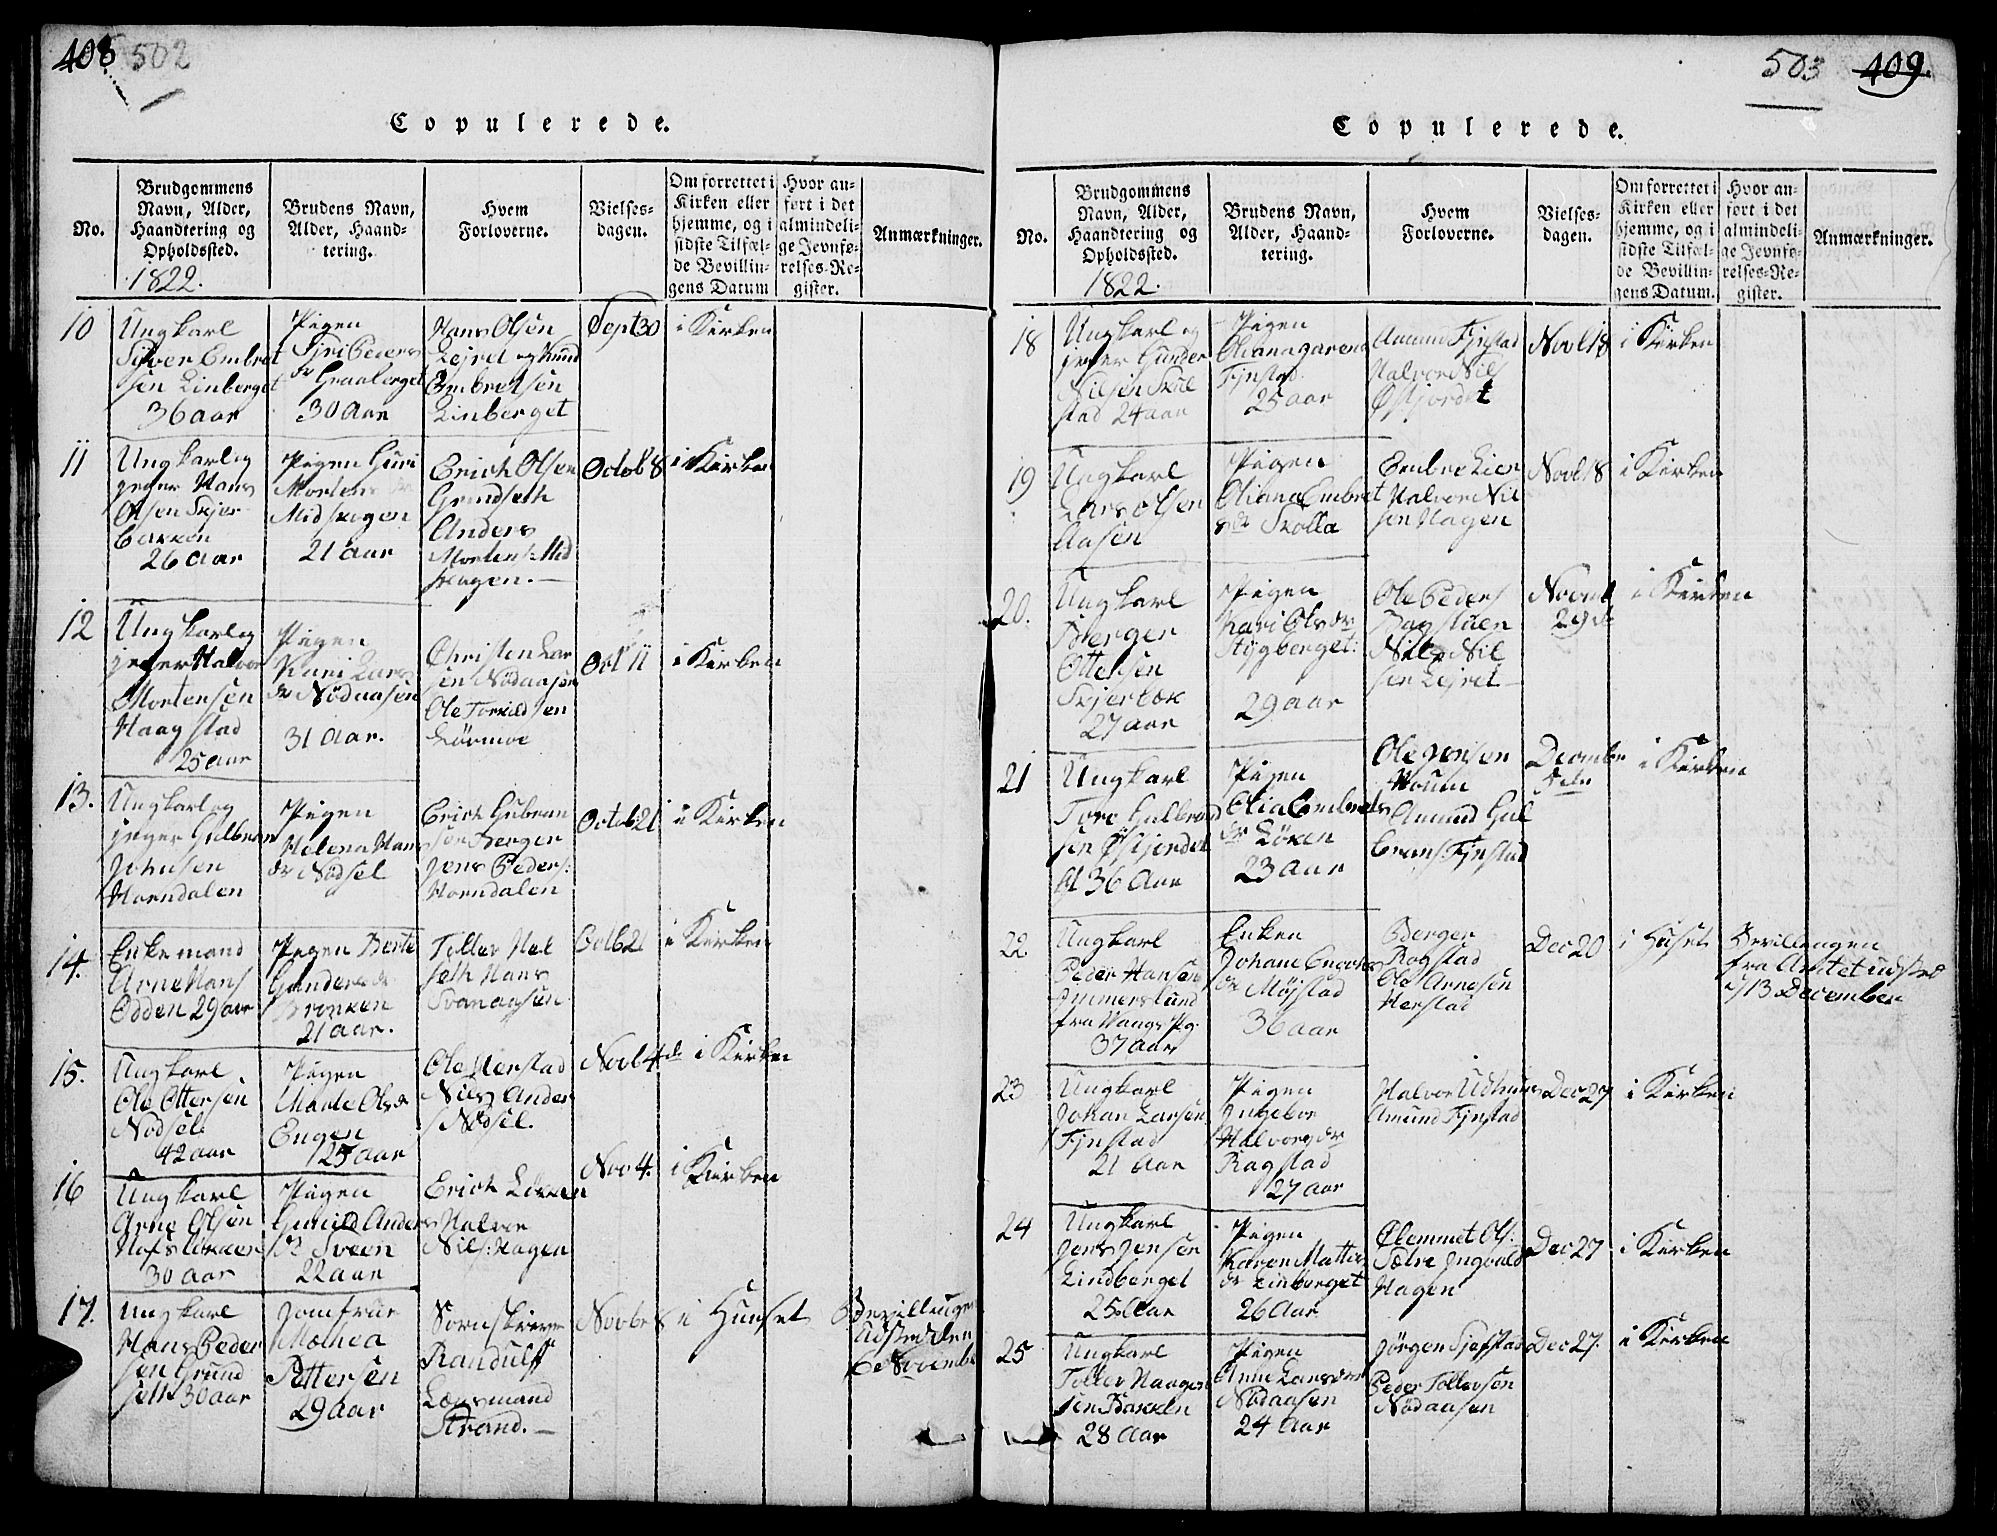 408 502
Copulerede.
No.
Brudgommens
Navn, Alder,
Haandtering og
Opholdssted.
1822.
Brudens Navn,
Alder, Haand-
tering.
Hvem
Forloverne.
Vielses-
dagen.
Om forrettet i
Kirken eller
hjemme, og i
sidste Tilfæl-
de Bevillin-
gens Datum
Hvor an-
ført i det
almindeli-
ge Jevnfø-
relses-Re-
gister.
Anmærkninger.
10
Ungkarl
Siver Embret
sen Linberget
36 aar
Pigen
Siri Peders
dr Graaberget
30 Aar
Hans Olsen
Lejret og Knud
Embretsen
Linberget
Sept 30
i Kirken
11
Ungkarl og
jeger Hans
Olsen Skjer
bekken
26 aar
Pigen Guri
Mortens dr
Midskogen
21 aar
Erich Olsen
Grundseth
Anders
Mortens: Mid
skogen.
Octob 8
i Kirken
12
Ungkarl og
jeger Halvor
Mortensen
Haagstad
25 aar
Pigen
Kari Lars
dr Nødaasen
31 Aar.
Christen Lar
sen Nødaasen
Ole Torkildsen
Lørmoe
Oct 11
i Kirken
13.
Ungkarl og
jeger Gulbran
Johnsen
Horndalen
Pigen
Helena Hans
dr Nødsel
Erich Gubran
sen Berger
Jens Peders:
Horndalen
Octob 21
i Kirken
14.
Enkemand
Arne Hans
Odden 29 aar
Pigen Berte
Gunders dr
Bronken
21 aar.
Toller Hel
seth Hans
Svenaasen
Octb 21
i Kirken
15.
Ungkarl
Ole Ottersen
Nødsel.
42 aar
Pigen
Marte Ols dr
Engen
25 aar
Ole Herstad
Niels Anders
s Nødsel.
Novb 4 de
i Kirken
16
Ungkarl
Arne Olsen
Hofsløkken
30 aar
Pigen
Gunild Anders
dr Sveen
22 aar
Erich Løken
Halvor
Nils: Hagen
Nov 4.
i Kirken
17.
Ungkarl
Hans Peder
sen Grund
seth 30 aar
Jomfrue
Malena
Pettersen
29 aar
Sornskriver
Randulff
Lænsmand
Strand.
Novbe 8
i Huuset
Bevillingen
udstedt den
6 November
503 409.
Copulerede.
No.
Brudgommens
Navn, Alder,
Haandtering og
Opholdssted.
1822.
Brudens Navn,
Alder, Haand-
tering.
Hvem
Forloverne.
Vielses-
dagen.
Om forrettet i
Kirken eller
hjemme, og i
sidste Tilfæl-
de Bevillin-
gens Datum.
Hvor an-
ført i det
almindeli-
ge Jevnfø-
relses-Re-
gister.
Anmærkninger.
18
Ungkarl og
jeger Gunder
Nilsen Skul
stad 24 aar
Pigen
Oliana
Fjnstad.
25 aar
Amund Fjnstad
Halvor Nils
Østjordet
Novb 18
i Kirken
19
Ungkarl
Lars Olsen
Aasen
Pigen
Oliana Embret
s dr Skolla
Embre Lier
Halvor Nil
sen Hagen
Novb 18
i Kirken
20.
Ungkarl
Berger
Ottersen
Skjerbek
27 aar
Pigen
Kari Ols dr
Stygberget:
29 aar
Ole Peders
Bagstuen
Nils Nil
sen Lejret
Novmb
29 de
i Kirken
21
Ungkarl
Tore Gulbrand
sen Østjordet
36 Aar
Pigen
Olia Embrets
dr Løken
23 aar
Ole Jensen
Houm
Amund Gul
brans: Fjnstad
Decembr
5 de
i Kirken
22
Ungkarl
Peder Hansen
Immerslund
fra Vangs Pg.
37 aar
Enken
Johane Enochs
dr Mojstad
36 aar
Berger
Rogstad
Ole Arnesen
Herstad
Dec 20
i Huset
Bevillingen
fra Amtet udsted
13 December
23
Ungkarl
Johan Larsen
Fjnstad
21 Aar
Pigen
Ingebor
Halvors dr
Ragstad
27 Aar
Halvor Udhuus
Amund Fjnstad
Dec 27
i Kirken
24
Ungkarl
Jens Jensen
Lindberget
25 Aar
Pigen
Karen Matties
dr Linberget
26 Aar
Clemmet Ols:
Sætre Ingvald
Hagen
Dec 27
i Kirken
25
Ungkarl
Toller Haagen
sen Bakken
28 Aar
Pigen
Anne Larsdr
Nødaasen
24 Aar
Jørgen Sjefstad
Peder Tollersen
Nødaasen
Dec 27.
i Kirken